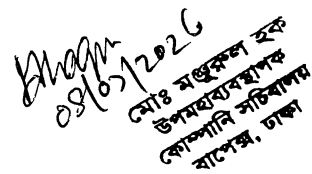 ০৪/০১/২০২৬
মোঃ মঞ্জুরুল হক
উপমহাব্যবস্থাপক
কোম্পানি সচিবালয়
বাপেক্স, ঢাকা